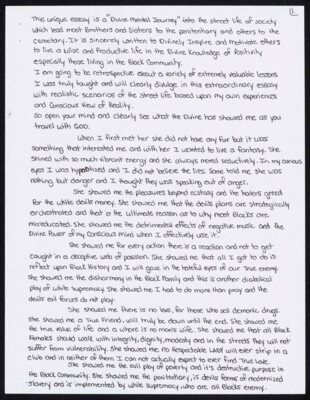 1
This unique essay is a "Divine Mental Journey" into the street life of society
which lead most Brothers and Sisters to the penitentiary and others to the
cemetary. It is sincerely written to Divinely Inspire and motivate others
to live a wise and Productive life in the Divine Knowledge of Positivity
especially those living in the Black Community.
I am going to be retrospective about a variety of extremely valuable lessons
I was truly taught and will clearly divulge in this extraordinary essay
with realistic scenarios of the street life based upon my own experiences
and Conscious view of Reality.
So open your mind and clearly see what the Divine has showed me as you
travel with GOD.
When I first met her she did not have any fur but it was
something that interested me and with her I wanted to live a fantasy. She
Shined with so much vibrant energy and she always moved seductively. In my curious
eyes I was hypnotized and I did not believe the lies some told me. She was
nothing but danger and I thought they was speaking out of anger.
She showed me the pleasures beyond ecstasy and the haters greed
for the white devils money. She showed me that the devils plans are strategically
orchestrated and that is the ultimate reason as to why most Blacks are
miseducated. She showed me the detrimental effects of negative music and the
Divine Power of my Conscious mind when I effectively use it.
She showed me for every action there is a reaction and not to get
caught in a deceptive web of passion. She showed me that all I got to do is
reflect upon Black History and I will gaze in the hateful eyes of our True enemy.
She showed me the disharmony in the Black Family and this is another diabolical
ploy of white supremacy. She showed me I had to do more than pray and the
devils evil forces do not play.
She showed me there is no love for those who sell demonic drugs.
She showed me a True Friend will truly be down until the end. She showed me
the true value of life and a whore is no mans wife. She showed me that all Black
Females should walk with integrity, dignity, modesty and in the streets they will not
suffer from vulnerability. She showed me no Respectable Woman will ever strip in a
club and in neither of them I can not actually expect to ever find True love.
She showed me the evil ploy of poverty and it's destructive purpose in
the Black Community. She showed me the penitentiary, is devils forms of modernized
slavery and is implemented by white supremacy who are all Blacks enemy.